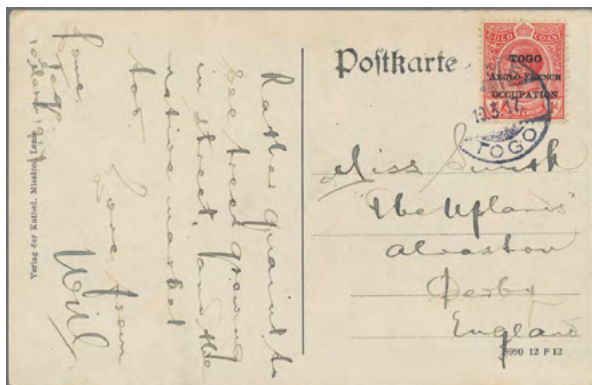 Postkarte
GOLD COAST
TOGO
ANGLO-FRENCH
OCCUPATION
TOGO
Miss Smith
"The Uplands"
Alvaston
Derby
England
5990 12 F 12
Rather quaint to
see trees growing
in street, and the
native market
too
Love from
Will
Lome
Togo
Verlag der Kathol. Mission, Lome